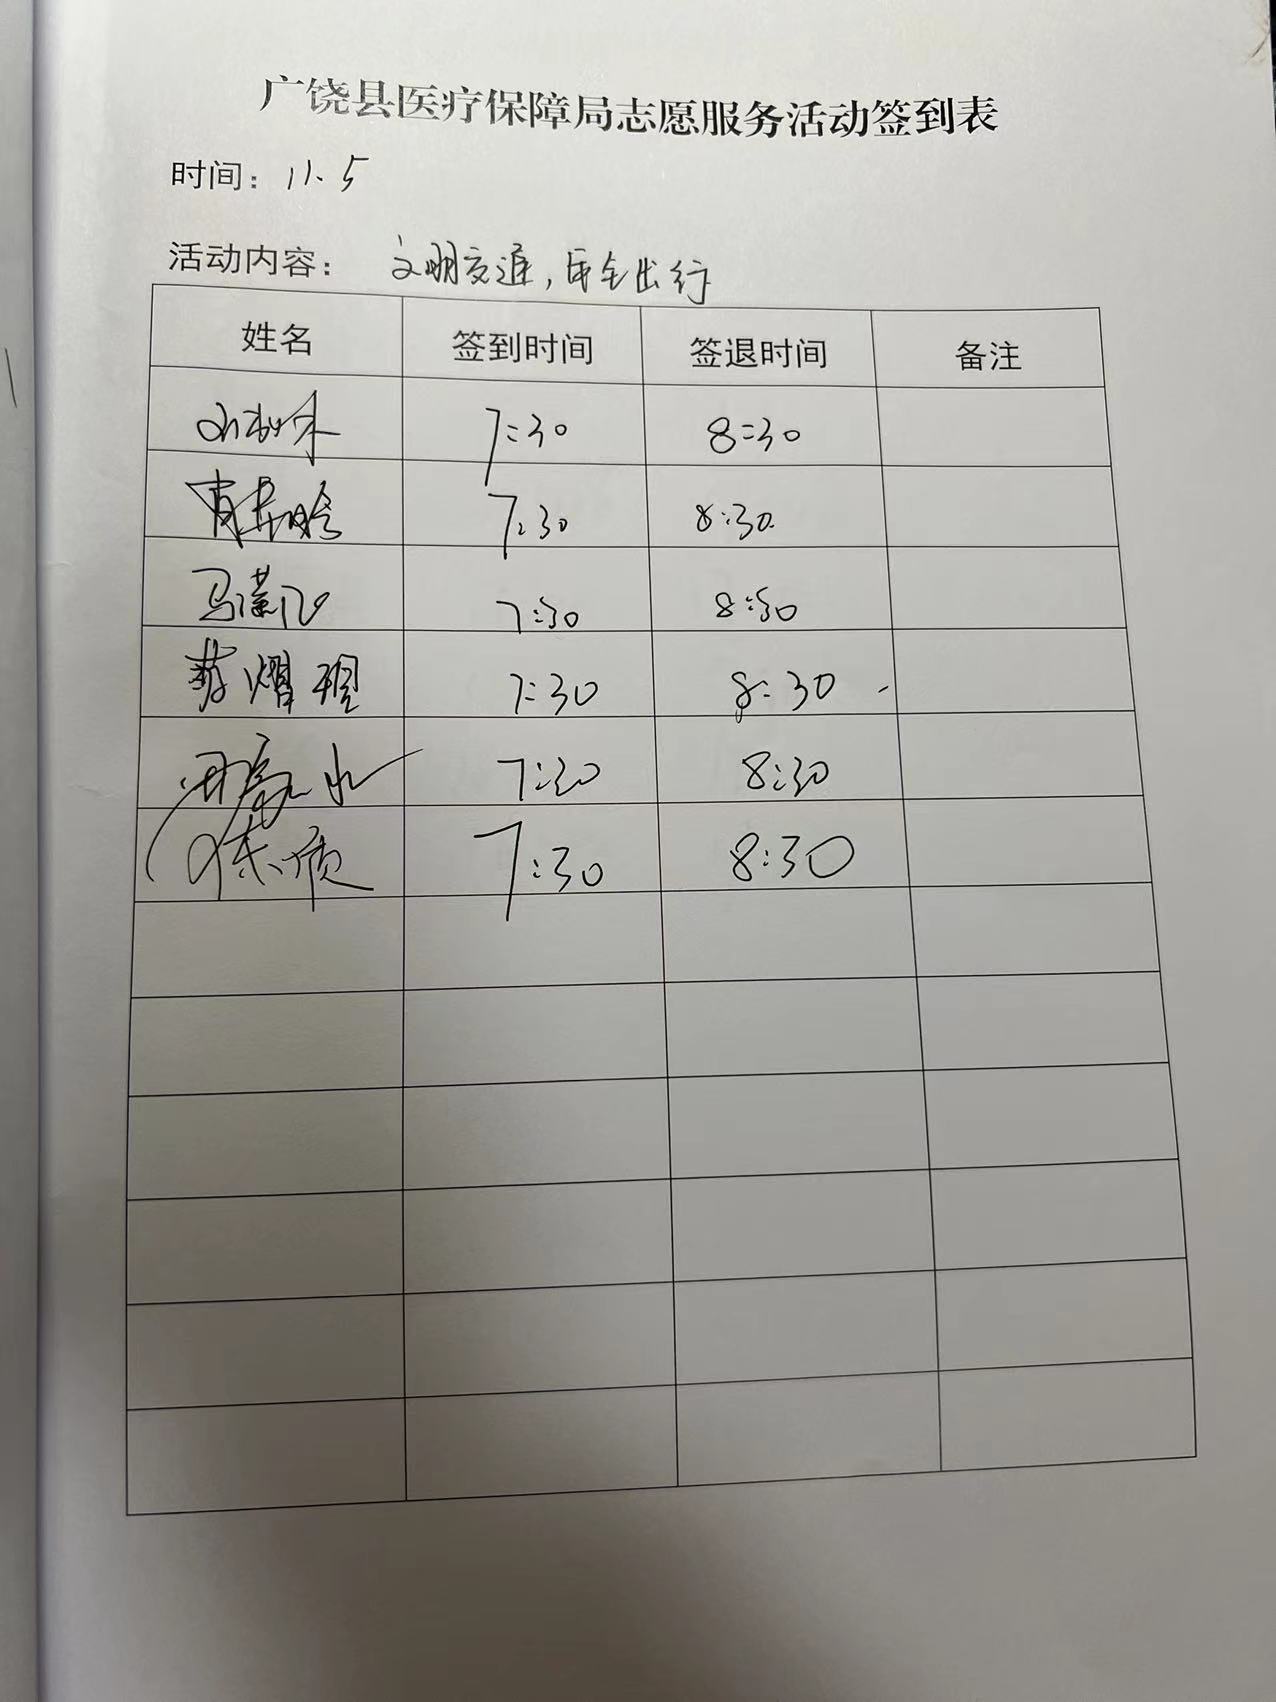 广饶县医疗保障局志愿服务活动签到表
时间：11.5
活动内容：文明交通，安全出行
姓名 签到时间 签退时间 备注
7:30 8:30
7:30 8:30
马潇飞 7:30 8:30
7:30 8:30
7:30 8:30
7:30 8:30